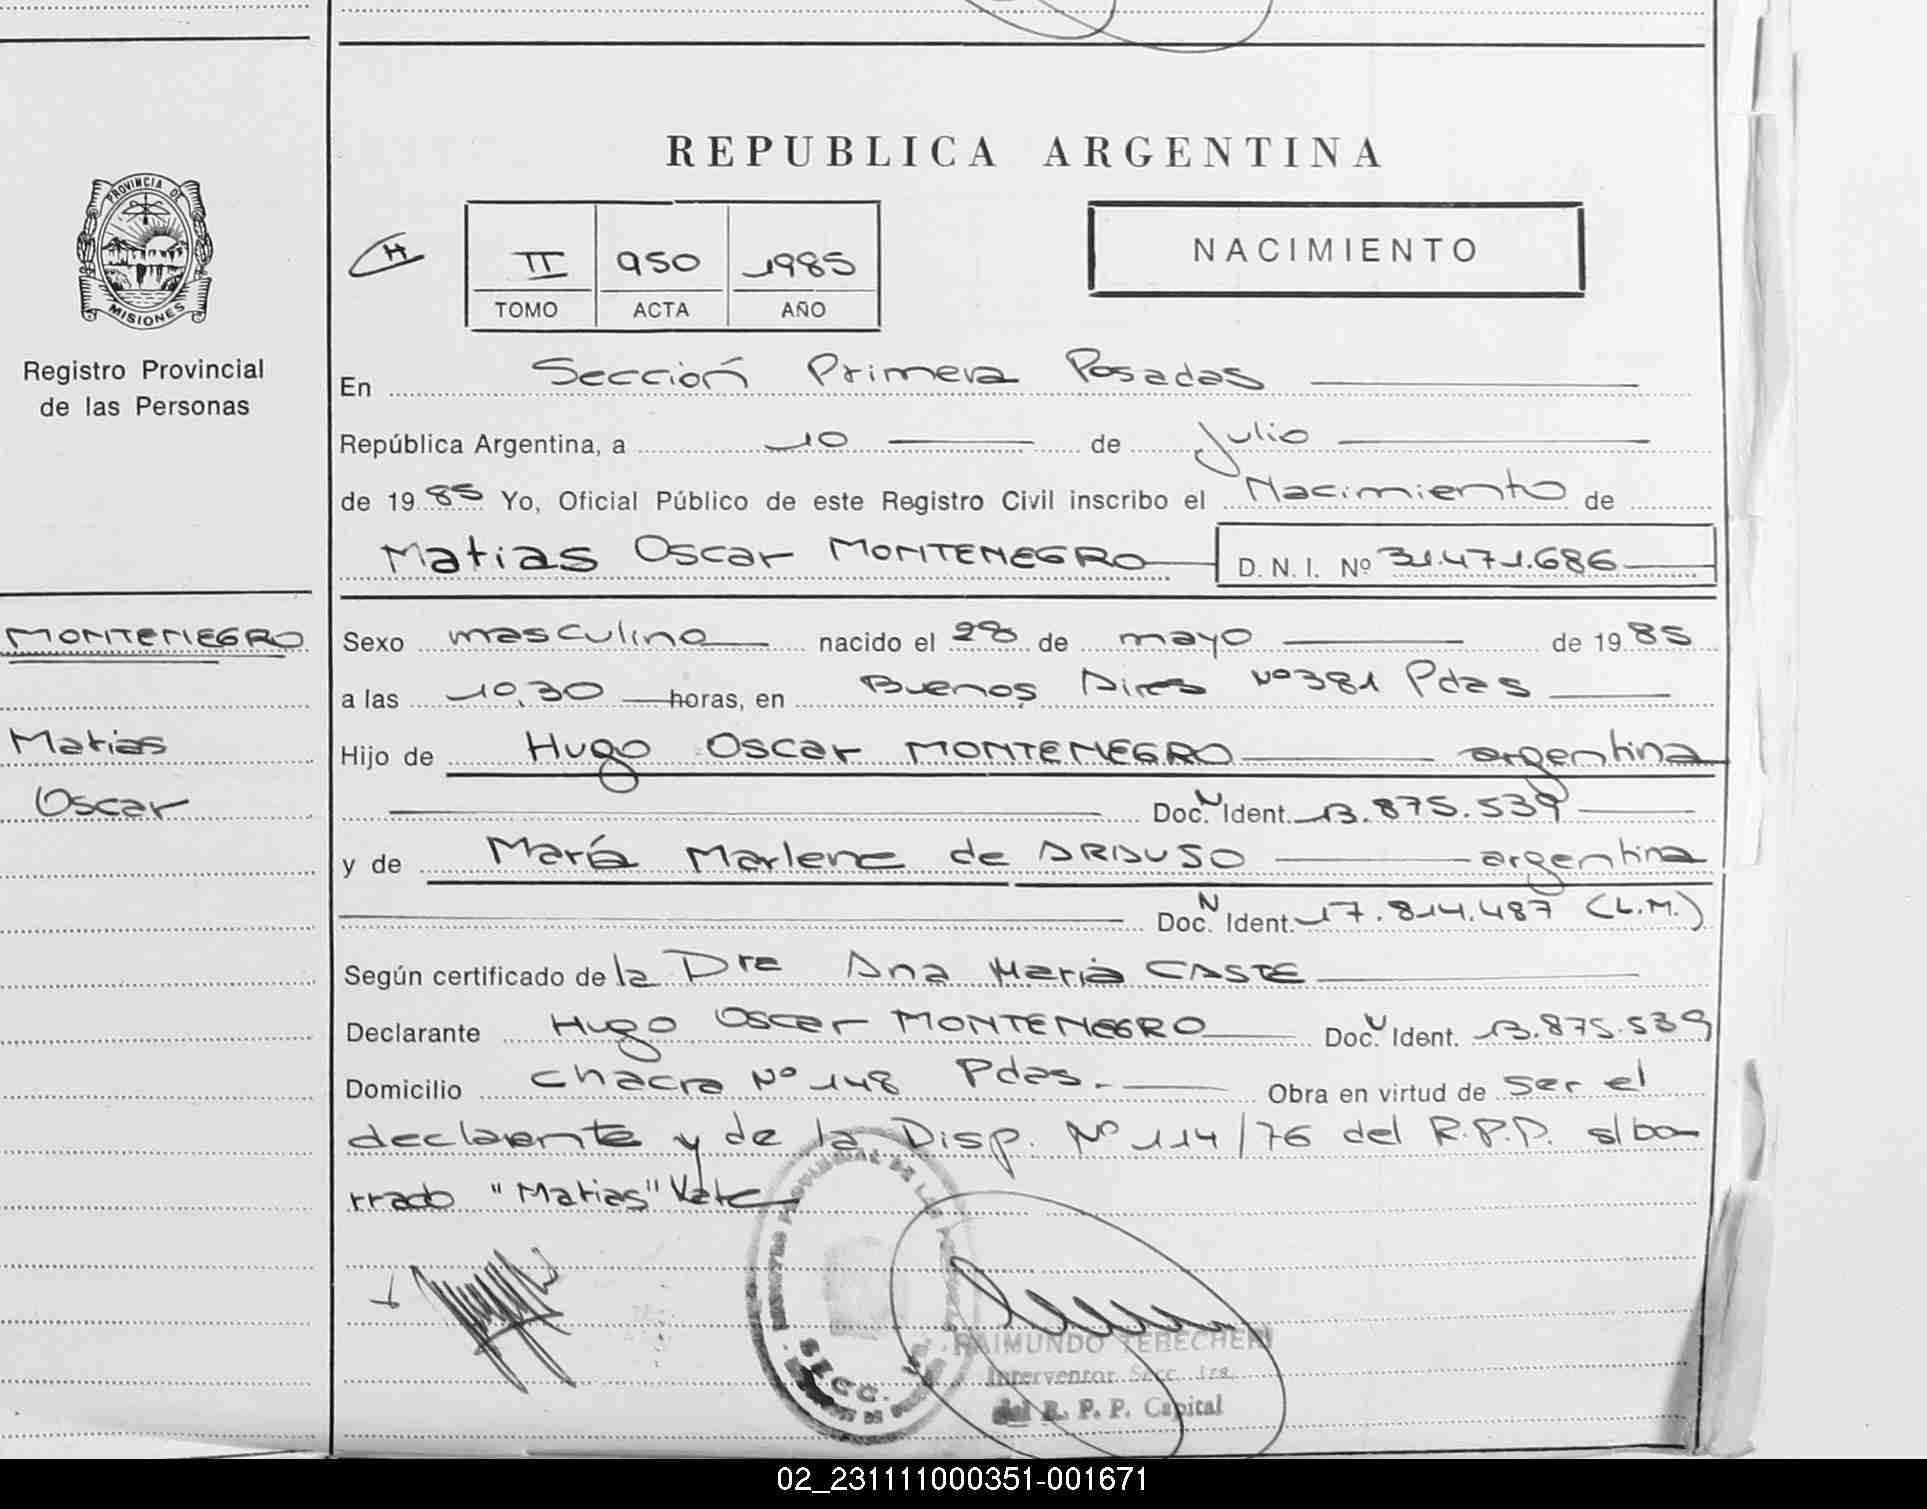 PROVINCIA DE
MISIONES
Registro Provincial
de las Personas
MONTENEGRO
Matias
Oscar
REPUBLICA ARGENTINA
H
II 950 1985
TOMO ACTA AÑO
NACIMIENTO
En Sección Primera Posadas
República Argentina, a 10 de Julio
de 1985 Yo, Oficial Público de este Registro Civil inscribo el Nacimiento de
Matias Oscar MONTENEGRO D. N. I. Nº 31.471.686
Sexo masculino nacido el 28 de mayo de 1985
a las 10,30 horas, en Buenos Aires Nº 381 Pdas
Hijo de Hugo Oscar MONTENEGRO argentina
Doc. N Ident. 13.875.539
y de María Marlene de ARAUSO argentina
Doc. N Ident. 17.814.487 (L.M.)
Según certificado de la Dra Ana María CASTE
Declarante Hugo Oscar MONTENEGRO Doc. N Ident. 13.875.539
Domicilio chacra Nº 148 Pdas. Obra en virtud de ser el
declarante y de la Disp. Nº 114/76 del R.P.P. s/bo-
rrado "Matias" Vale
SECC.
RAIMUNDO TERECHERI
Interventor Secc. 1ra.
del R. P. P. Capital
02_231111000351-001671